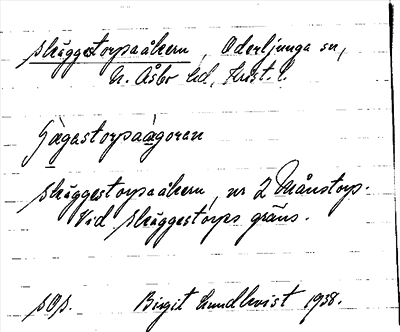 Skäggestorpaåkern, Oderljunga sn,
N. Åsbo hd, Krist. l.
Skäggestorpaåkern, nr 2 Månstorp.
Vid Skäggestorps gräns.
sOs. Birgit Lundkvist 1938.